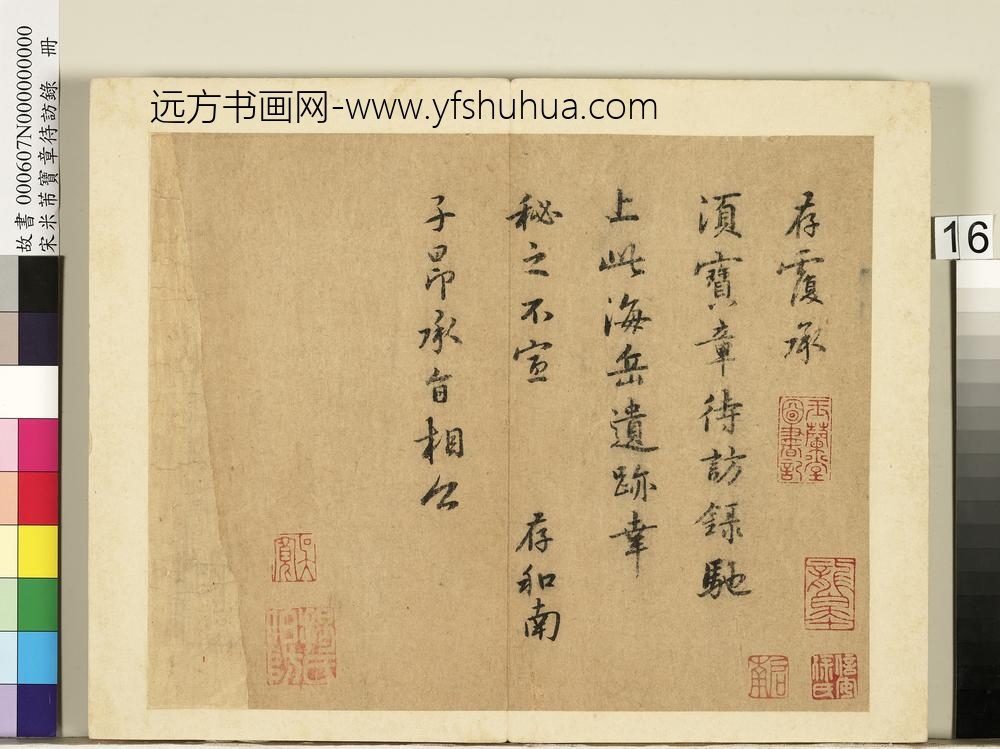 远方书画网-www.yfshuhua.com
故書 000607N000000000
宋米芾寶章待訪錄 冊
16
存覆承
須寶章待訪錄馳
上此海岳遺跡幸
秘之不宣 存和南
子昂承旨相公
玉蘭堂圖書記